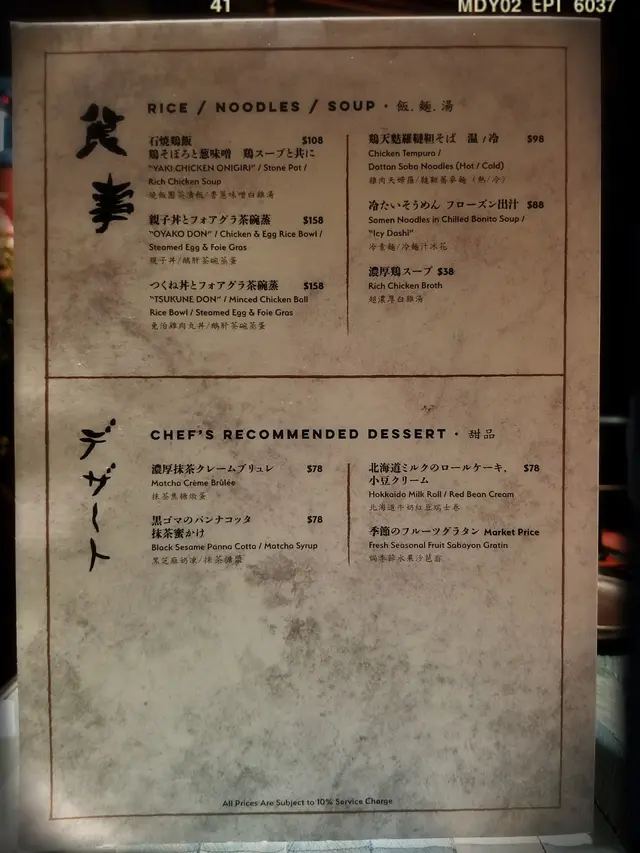 41
MDY02 EPT 6037
食事
RICE / NOODLES / SOUP · 飯. 麺. 湯
石焼鶏飯 $108
鶏そぼろと葱味噌 鶏スープと共に
"YAKI CHICKEN ONIGIRI" / Stone Pot /
Rich Chicken Soup
親子丼とフォアグラ茶碗蒸 $158
"OYAKO DON" / Chicken & Egg Rice Bowl /
Steamed Egg & Foie Gras
親子丼/鵝肝茶碗蒸蛋
つくね丼とフォアグラ茶碗蒸 $158
"TSUKUNE DON" / Minced Chicken Ball
Rice Bowl / Steamed Egg & Foie Gras
免治雞肉丸丼/鵝肝茶碗蒸蛋
鶏天麩羅韃靼そば 温 / 冷 $98
Chicken Tempura /
Dattan Soba Noodles (Hot / Cold)
雞肉天婦羅/韃靼蕎麥麵 (熱/冷)
冷たいそうめん フローズン出汁 $88
Somen Noodles in Chilled Bonito Soup /
"Icy Dashi"
冷素麵/冷鰹汁冰花
濃厚鶏スープ $38
Rich Chicken Broth
超濃厚白雞湯
デザート
CHEF'S RECOMMENDED DESSERT · 甜品
濃厚抹茶クレームブリュレ $78
Matcha Crème Brûlée
抹茶焦糖燉蛋
黒ゴマのパンナコッタ $78
抹茶蜜かけ
Black Sesame Panna Cotta / Matcha Syrup
黑芝麻奶凍/抹茶糖漿
北海道ミルクのロールケーキ, $78
小豆クリーム
Hokkaido Milk Roll / Red Bean Cream
北海道牛奶紅豆瑞士卷
季節のフルーツグラタン Market Price
Fresh Seasonal Fruit Sabayon Gratin
焗季節水果沙芭翁
All Prices Are Subject to 10% Service Charge